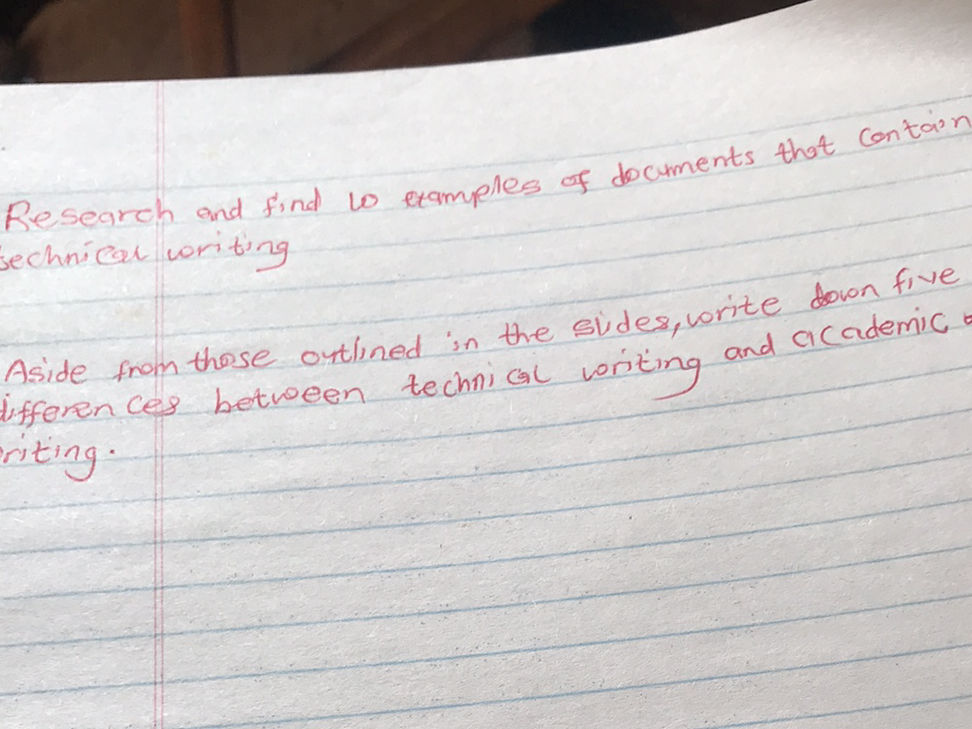 Research and find 10 examples of documents that contain
technical writing
Aside from those outlined in the slides, write down five
differences between technical writing and academic
writing.